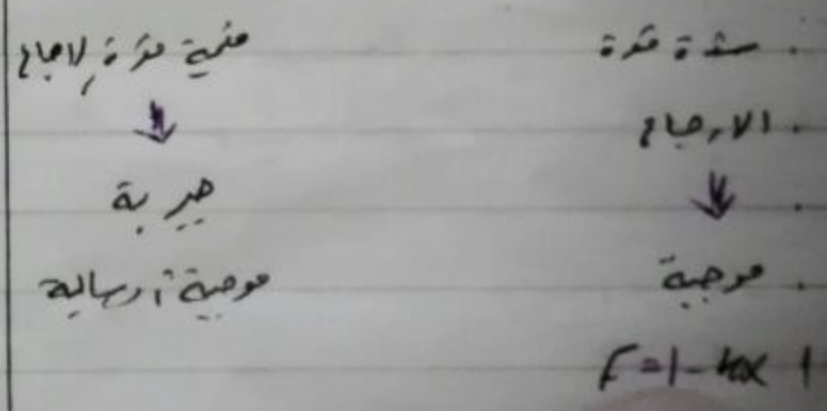 شدة قوة
الارجاع
↓
موجبة
F = |-kx|
قيمة قوة الإرجاع
↓
جبرية
موجبة أو سالبة